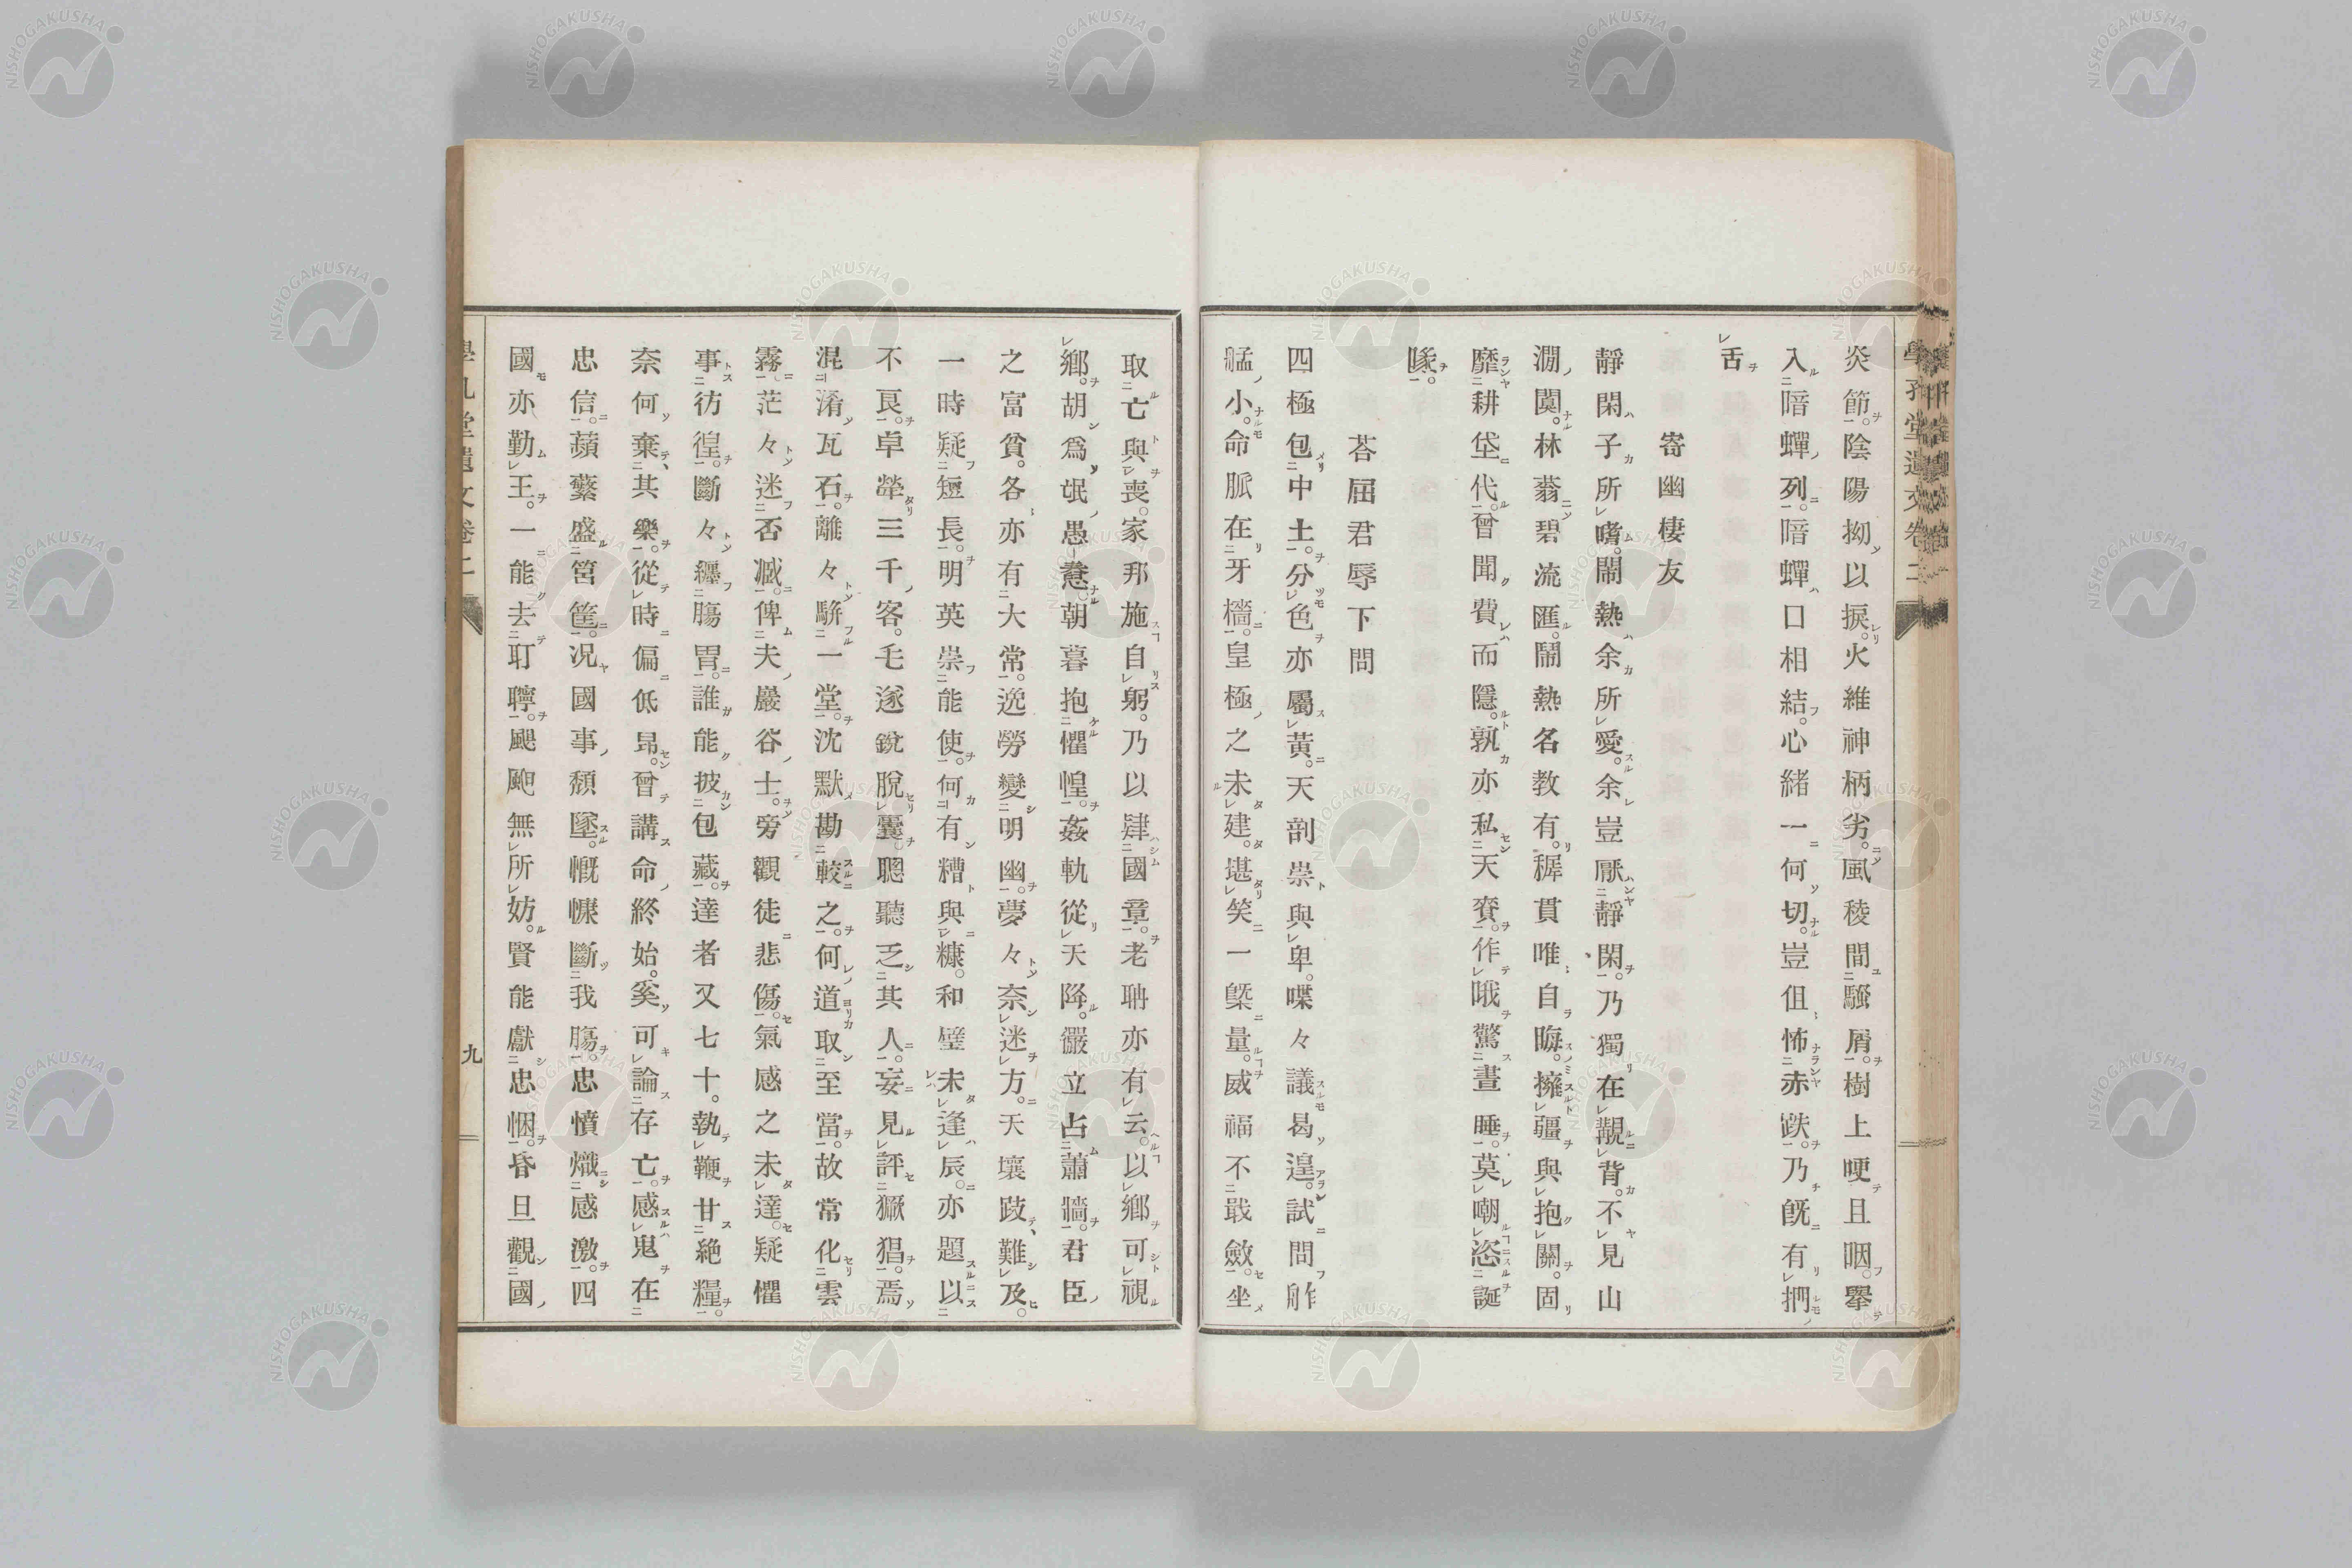 炎節。陰陽拗以捩。火維神柄劣。風稜間騷屑。樹上哽且咽。擧
入暗蟬列。暗蟬口相結。心緒一何切。豈伹怖赤跌。乃旣有捫
舌
寄幽棲友
靜閑子所嗜。鬧熱余所愛。余豈厭靜閑。乃獨在覯背。不見山
澗闃。林蓊碧流匯。鬧熱名教有。穉貫唯自晦。擁疆與抱關。固
靡耕垡代。曾聞費而隱。孰亦私天賚。作哦驚晝睡。莫嘲恣誕
隊。
荅屈君辱下問
四極包中土。分色亦屬黃。天剖崇與卑。喋々議曷遑。試問舴
艋小。命脈在牙檣。皇極之未建。堪笑一槩量。威福不戢斂。坐
取亡與喪。家邦施自躬。乃以肄國章。老聃亦有云。以鄉可視
鄉。胡爲氓愚惷。朝暮抱懼惶。姦軌從天降。儼立占蕭牆。君臣
之富貧。各亦有大常。逸勞變明幽。夢々奈迷方。天壤跂難及。
一時疑短長。明英崇能使。何有糟與糠。和璧未逢辰。亦題以
不良。卓犖三千客。毛遂銳脫囊。聰聽乏其人。妄見評獗猖。焉
混淆瓦石。離々駢一堂。沈默勘較之。何道取至當。故常化雲
霧。茫々迷否臧。俾夫巖谷士。旁觀徒悲傷。氣感之未達。疑懼
事彷徨。斷々纒腸胃。誰能披包藏。達者又七十。執鞭甘絶糧。
奈何棄其樂。從時偏低昻。曾講命終始。奚可論存亡。感鬼在
忠信。蘋蘩盛筥筐。況國事頹墜。慨慷斷我腸。忠憤熾感激。四
國亦勤王。一能去耵聹。颶颮無所妨。賢能獻忠悃。昏旦觀國
九